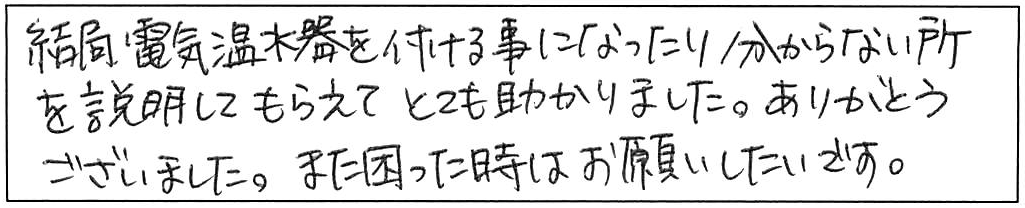 結局電気温水器を付ける事になったり分からない所
を説明してもらえてとても助かりました。ありがとう
ございました。また困った時はお願いしたいです。